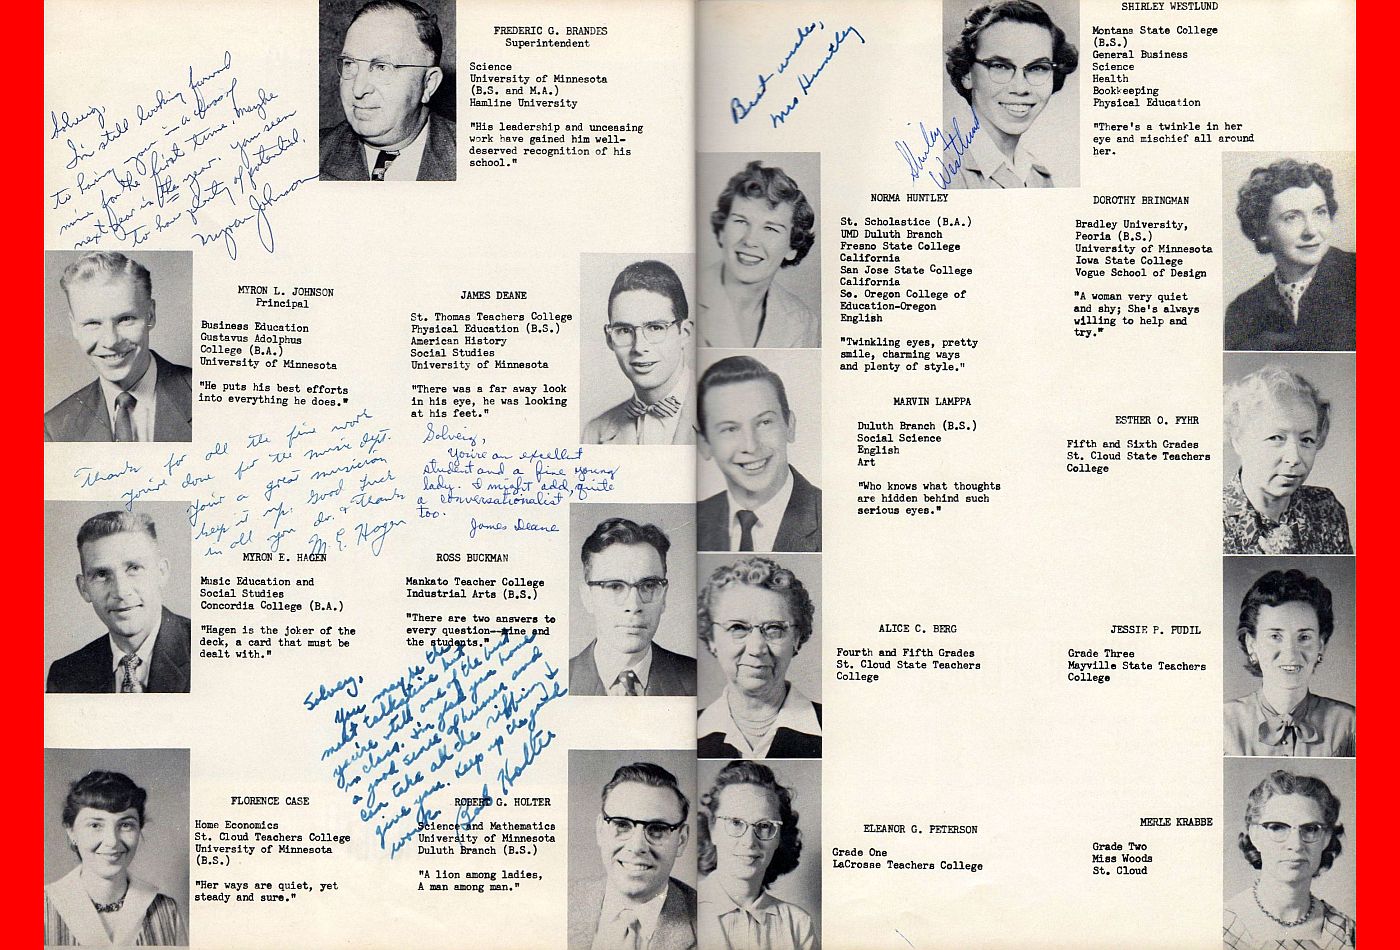 FREDERIC G. BRANDES
Superintendent
Science
University of Minnesota
(B.S. and M.A.)
Hamline University
"His leadership and unceasing
work have gained him well-
deserved recognition of his
school."
Solveig,
I'm still looking forward
to having you in a class of
mine for the first time. Maybe
next year is the year. you seem
to have plenty of potential.
Myron Johnson
MYRON L. JOHNSON
Principal
Business Education
Gustavus Adolphus
College (B.A.)
University of Minnesota
"He puts his best efforts
into everything he does."
JAMES DEANE
St. Thomas Teachers College
Physical Education (B.S.)
American History
Social Studies
University of Minnesota
"There was a far away look
in his eye, he was looking
at his feet."
Thanks for all the fine work
you've done for the music dept.
You're a great musician
keep it up. Good luck
in all you do. & Thanks
M. E. Hagen
Solveig,
You're an excellent
student and a fine young
lady. I might add, quite
a conversationalist
too.
James Deane
MYRON E. HAGEN
Music Education and
Social Studies
Concordia College (B.A.)
"Hagen is the joker of the
deck, a card that must be
dealt with."
ROSS BUCKMAN
Mankato Teacher College
Industrial Arts (B.S.)
"There are two answers to
every question--mine and
the students."
Solveig,
You may be the
most talkative but
you're still one of the best
in class. I'm glad you have
a good sense of humor and
can take all the ribbing I
give you. Keep up the good
work.
Bob Holter
FLORENCE CASE
Home Economics
St. Cloud Teachers College
University of Minnesota
(B.S.)
"Her ways are quiet, yet
steady and sure."
ROBERT G. HOLTER
Science and Mathematics
University of Minnesota
Duluth Branch (B.S.)
"A lion among ladies,
A man among man."
Best wishes,
Mrs Huntley
SHIRLEY WESTLUND
Montana State College
(B.S.)
General Business
Science
Health
Bookkeeping
Physical Education
"There's a twinkle in her
eye and mischief all around
her.
Shirley
Westlund
NORMA HUNTLEY
St. Scholastice (B.A.)
UMD Duluth Branch
Fresno State College
California
San Jose State College
California
So. Oregon College of
Education-Oregon
English
"Twinkling eyes, pretty
smile, charming ways
and plenty of style."
DOROTHY BRINGMAN
Bradley University,
Peoria (B.S.)
University of Minnesota
Iowa State College
Vogue School of Design
"A woman very quiet
and shy; She's always
willing to help and
try."
MARVIN LAMPPA
Duluth Branch (B.S.)
Social Science
English
Art
"Who knows what thoughts
are hidden behind such
serious eyes."
ESTHER O. FYHR
Fifth and Sixth Grades
St. Cloud State Teachers
College
ALICE C. BERG
Fourth and Fifth Grades
St. Cloud State Teachers
College
JESSIE P. PUDIL
Grade Three
Mayville State Teachers
College
ELEANOR G. PETERSON
Grade One
LaCrosse Teachers College
MERLE KRABBE
Grade Two
Miss Woods
St. Cloud